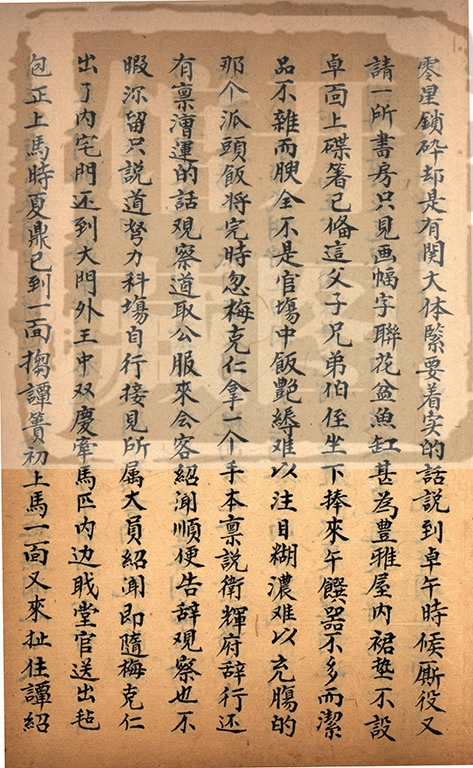 零星鎖碎却是有関大体緊要着实的話説到卓午時候厮役又
請一所書房只見画幅字聯花盆魚缸甚為豊雅屋内裙垫不設
卓面上碟箸已俻這父子兄弟伯侄坐下捧來午饌器不多而潔
品不雜而腴全不是官塲中飯艷縟难以注目糊濃难以充膓的
那个派頭飯将完時忽梅克仁拿一个手本禀説衛輝府辞行还
有禀漕運的話观察道取公服來会客紹闻順便告辞观察也不
暇深留只説道努力科塲自行接見所属大員紹聞即隨梅克仁
出了内宅門还到大門外王中双慶牽馬匹内边戢堂官送出毡
包正上馬時夏鼎已到一面搊譚簣初上馬一面又來扯住譚紹